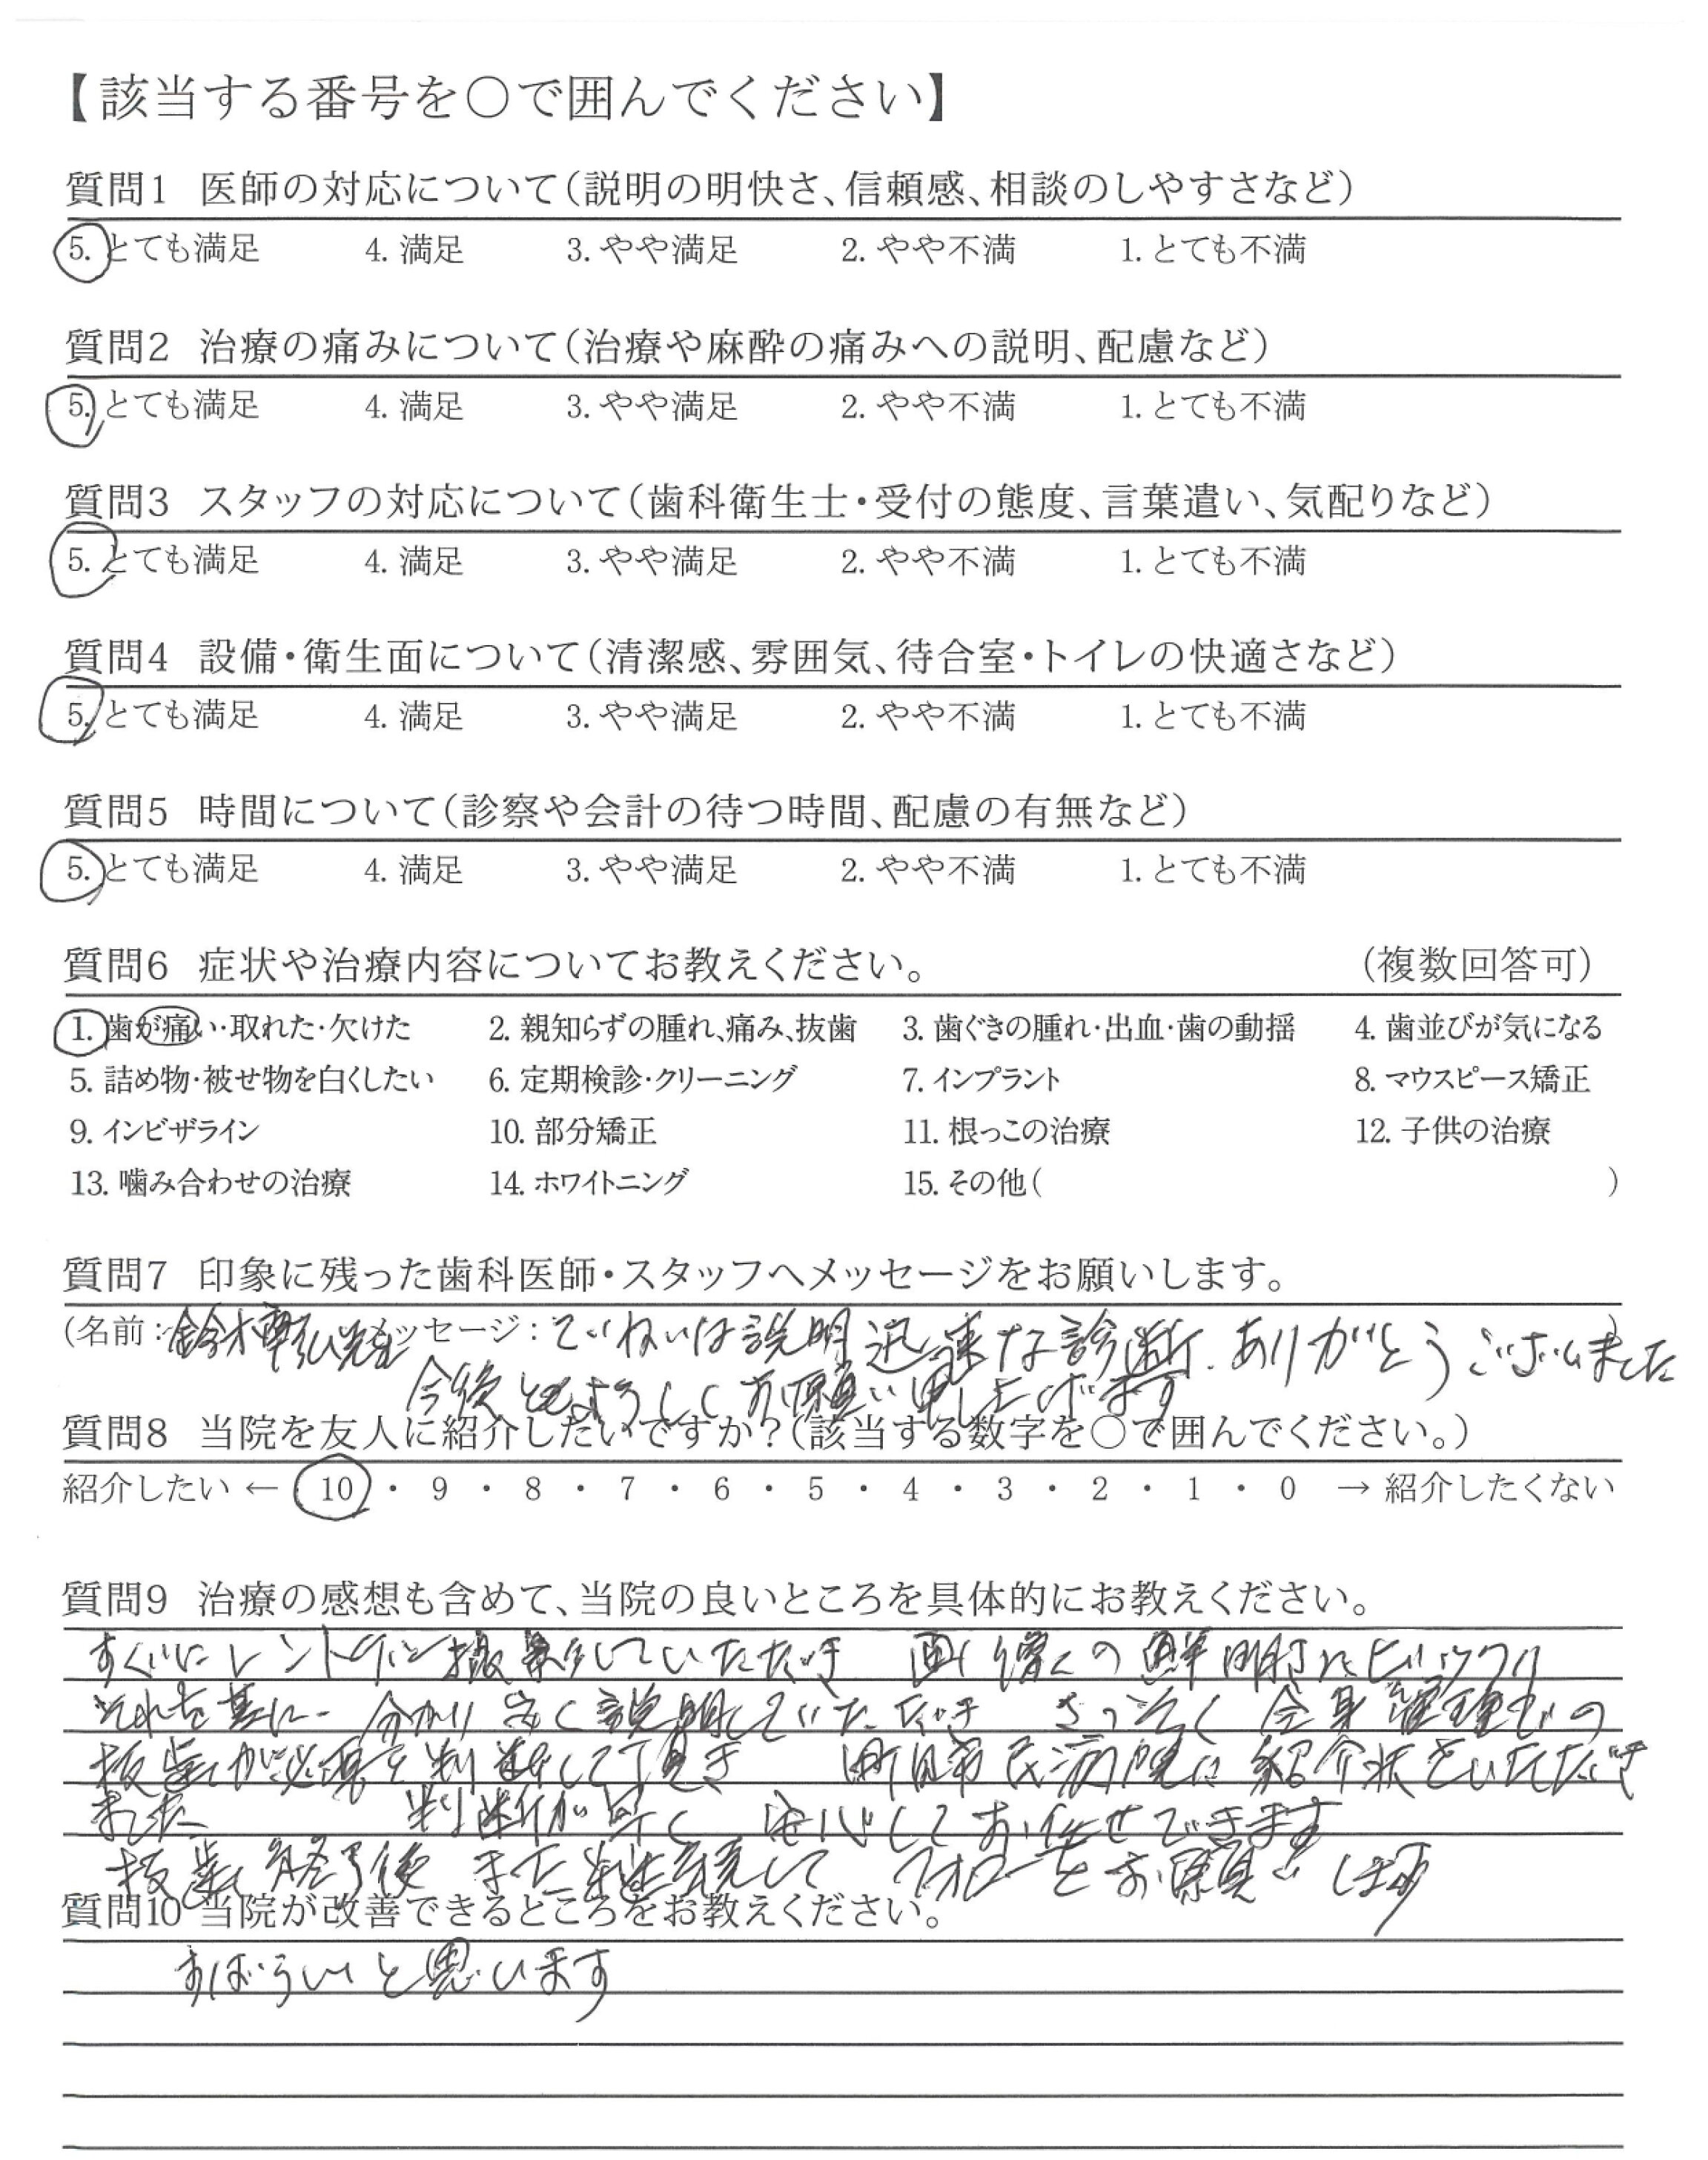 【該当する番号を○で囲んでください】
質問1 医師の対応について(説明の明快さ、信頼感、相談のしやすさなど)
5. とても満足 4. 満足 3. やや満足 2. やや不満 1. とても不満
質問2 治療の痛みについて(治療や麻酔の痛みへの説明、配慮など)
5. とても満足 4. 満足 3. やや満足 2. やや不満 1. とても不満
質問3 スタッフの対応について(歯科衛生士・受付の態度、言葉遣い、気配りなど)
5. とても満足 4. 満足 3. やや満足 2. やや不満 1. とても不満
質問4 設備・衛生面について(清潔感、雰囲気、待合室・トイレの快適さなど)
5. とても満足 4. 満足 3. やや満足 2. やや不満 1. とても不満
質問5 時間について(診察や会計の待つ時間、配慮の有無など)
5. とても満足 4. 満足 3. やや満足 2. やや不満 1. とても不満
質問6 症状や治療内容についてお教えください。 (複数回答可)
1. 歯が痛い・取れた・欠けた 2. 親知らずの腫れ、痛み、抜歯 3. 歯ぐきの腫れ・出血・歯の動揺 4. 歯並びが気になる
5. 詰め物・被せ物を白くしたい 6. 定期検診・クリーニング 7. インプラント 8. マウスピース矯正
9. インビザライン 10. 部分矯正 11. 根っこの治療 12. 子供の治療
13. 噛み合わせの治療 14. ホワイトニング 15. その他( )
質問7 印象に残った歯科医師・スタッフへメッセージをお願いします。
(名前: 鈴木 先生 メッセージ: ていねいな説明 迅速な診断、ありがとうございました )
今後ともよろしくお願い申し上げます
質問8 当院を友人に紹介したいですか?(該当する数字を○で囲んでください。)
紹介したい ← 10 ・ 9 ・ 8 ・ 7 ・ 6 ・ 5 ・ 4 ・ 3 ・ 2 ・ 1 ・ 0 → 紹介したくない
質問9 治療の感想も含めて、当院の良いところを具体的にお教えください。
すぐにレントゲン撮影していただき 画像の鮮明さにビックリ
それを基に 分かり安く説明していただき さっそく 全身管理での
抜歯が必要と判断して頂き 町田市民病院に紹介状をいただき
ました 判断が早く 安心してお任せできます
抜歯終了後 また してフォローをお願いします
質問10 当院が改善できるところをお教えください。
すばらしいと思います